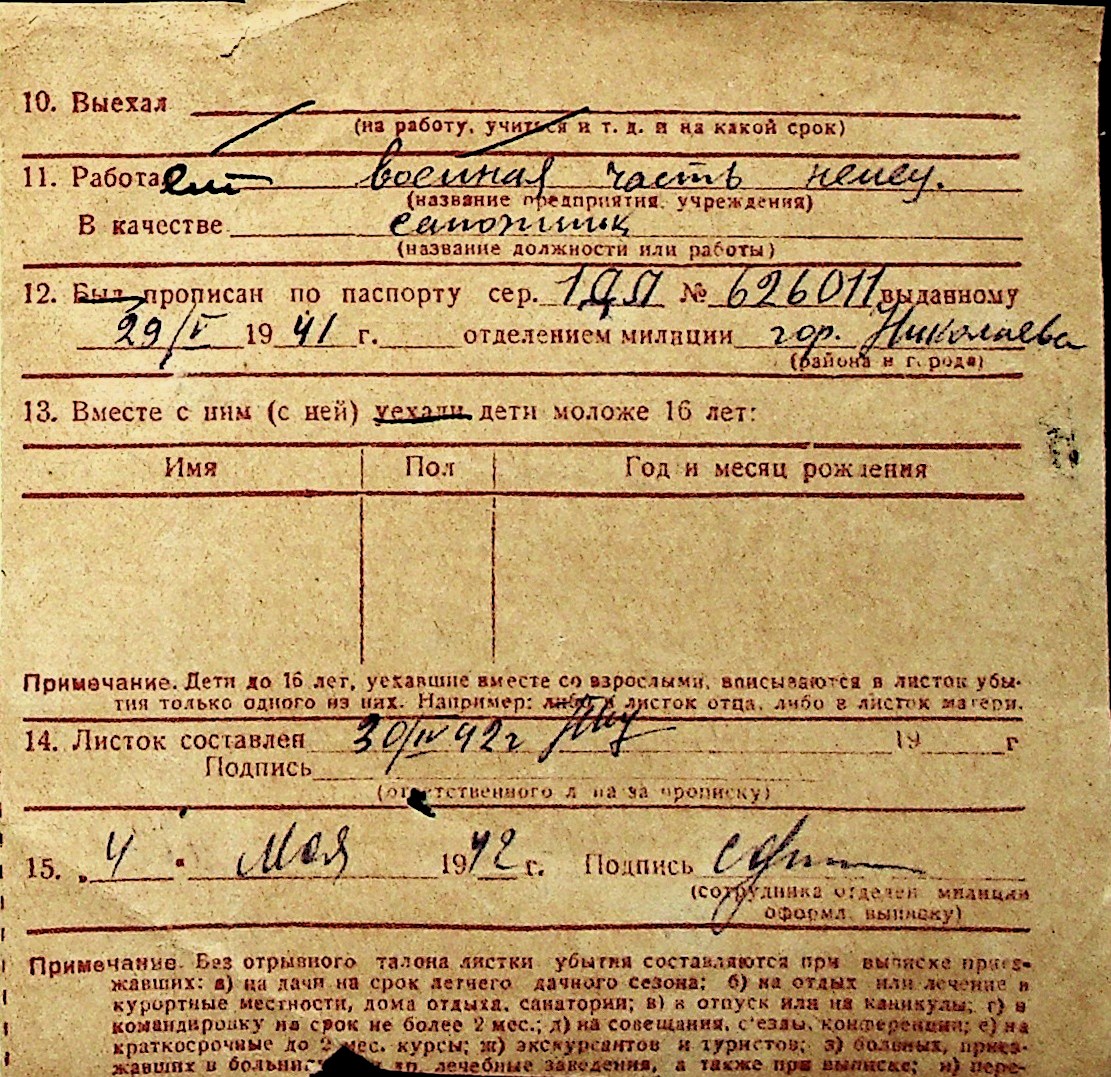 10. Выехал
(на работу, учиться и т. д. и на какой срок)
11. Работает военная часть немец.
(название предприятия, учреждения)
В качестве сапожник
(название должности или работы)
12. Был прописан по паспорту сер. № 626011 выданному
29/V 1941 г. отделением милиции гор. Николаева
(района и города)
13. Вместе с ним (с ней) уехали дети моложе 16 лет:
Имя Пол Год и месяц рождения
Примечание. Дети до 16 лет, уехавшие вместе со взрослыми, вписываются в листок убы-
тия только одного из них. Например: либо в листок отца, либо в листок матери.
14. Листок составлен 30/IV 42 г 19 г
Подпись
(ответственного л на за прописку)
15. 4 " Мая 1942 г. Подпись
(сотрудника отделен милиции
оформл. выписку)
Примечание. Без отрывного талона листки убытия составляются при выписке приез-
жавших: а) на дачи на срок летнего дачного сезона; б) на отдых или лечение в
курортные местности, дома отдыха, санатории; в) в отпуск или на каникулы; г) в
командировку на срок не более 2 мес.; д) на совещания, с'езды, конференции; е) на
краткосрочные до 2 мес. курсы; ж) экскурсантов и туристов; з) больных, приез-
жавших в больниц др. лечебные заведения, а также при выписке; и) пере-